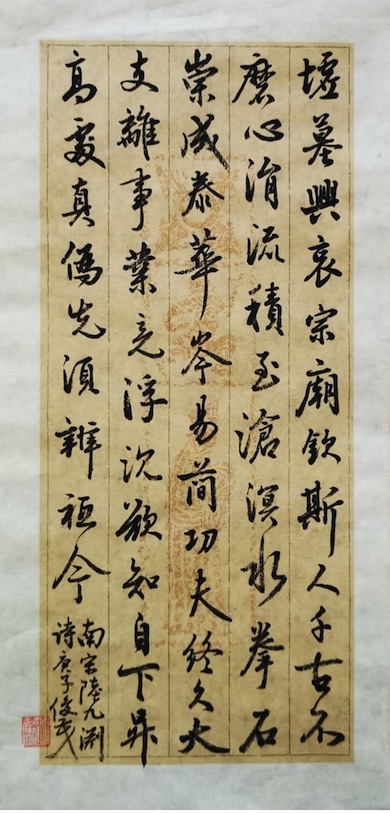 墟墓興哀宗廟欽斯人千古不
磨心涓流積至滄溟水拳石
崇成泰華岑易簡功夫終久大
支離事業竟浮沉欲知自下昇
高處真偽先須辨祗今
南宋陸九淵
詩庚子俊